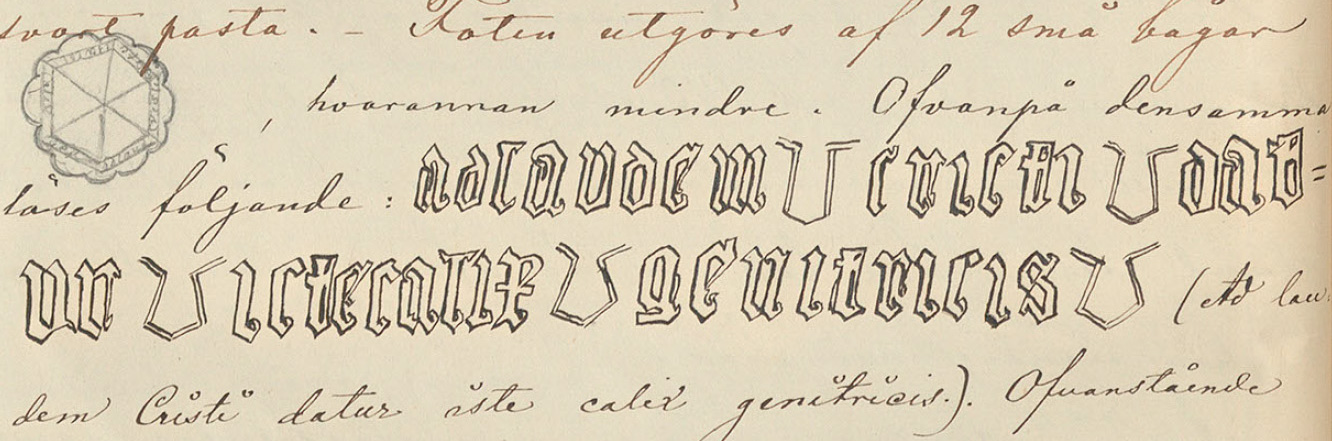 svart pasta. – Foten utgöres af 12 små bågar
, hvarannan mindre. Ofvanpå densamma
läses följande: adlaudem cricti dat=
ur icte calix genitricis (Ad lau-
dem Cristi datur iste calix genitricis.). Ofvanstående